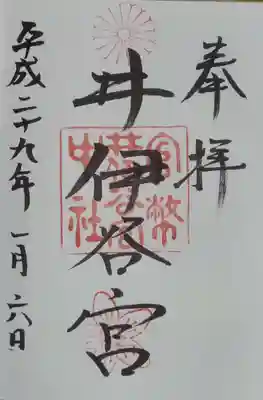 奉拝
井伊谷宮
官幣中社
井伊谷宮
平成二十九年一月六日